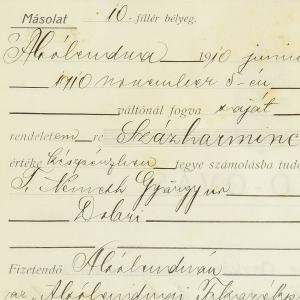 Másolat 10 - fillér bélyeg.
Alsólendva 1910 junius
1910 november 5-én
váltónál fogva saját
rendeletem re Százharminc
értéke készpénzben tegye számolásba tudó
T. Németh György ur
Dobri
Fizetendő Alsólendván
az Alsólendvai Takarék